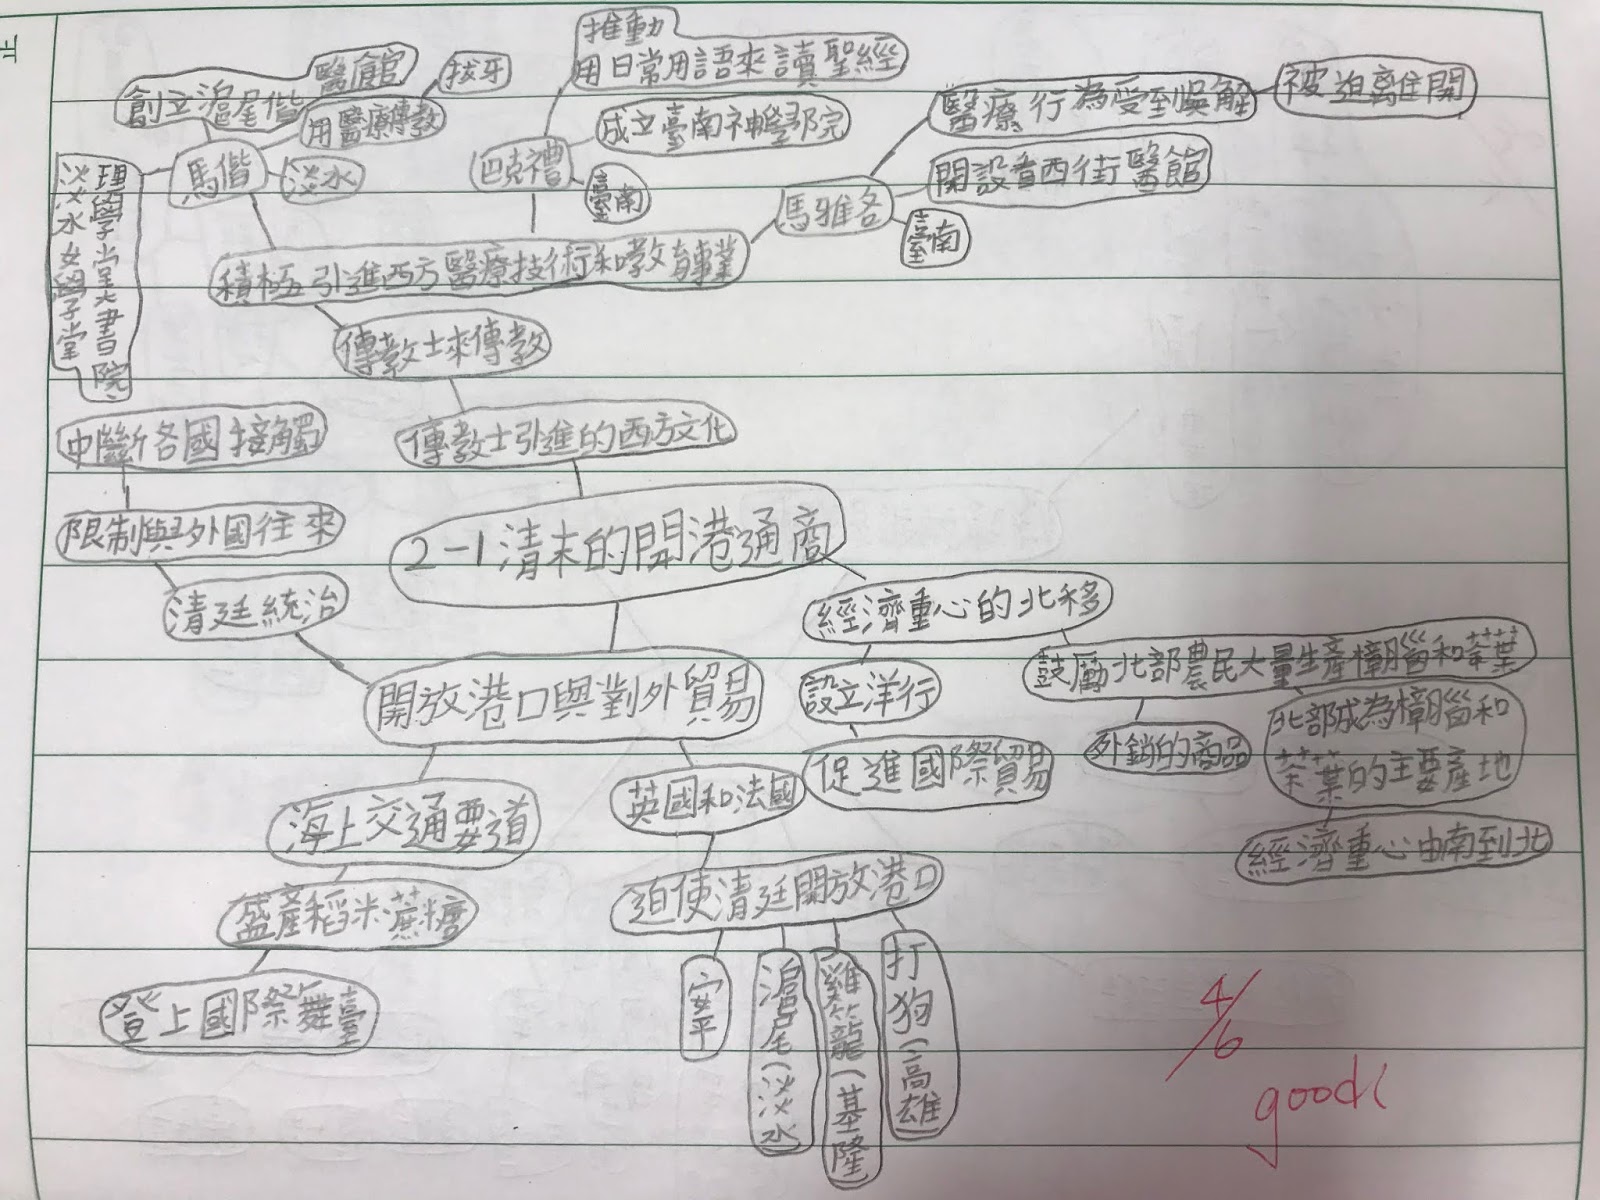 醫館
創立滬尾偕
用醫療傳教
拔牙
馬偕
淡水
理學堂大書院
淡水女學堂
推動
用日常用語來讀聖經
成立臺南神學院
巴克禮
臺南
醫療行為受到吳解
被迫離開
開設看西街醫館
馬雅各
臺南
積極引進西方醫療技術和教育事業
傳教士來傳教
傳教士引進的西方文化
中斷各國接觸
限制與外國往來
清廷統治
2-1清末的開港通商
開放港口與對外貿易
經濟重心的北移
設立洋行
促進國際貿易
鼓勵北部農民大量生產樟腦和茶葉
外銷的商品
北部成為樟腦和
茶葉的主要產地
經濟重心由南到北
海上交通要道
盛產稻米蔗糖
登上國際舞臺
英國和法國
迫使清廷開放港口
安平
滬尾(淡水
雞籠(基隆
打狗(高雄
4/6
good